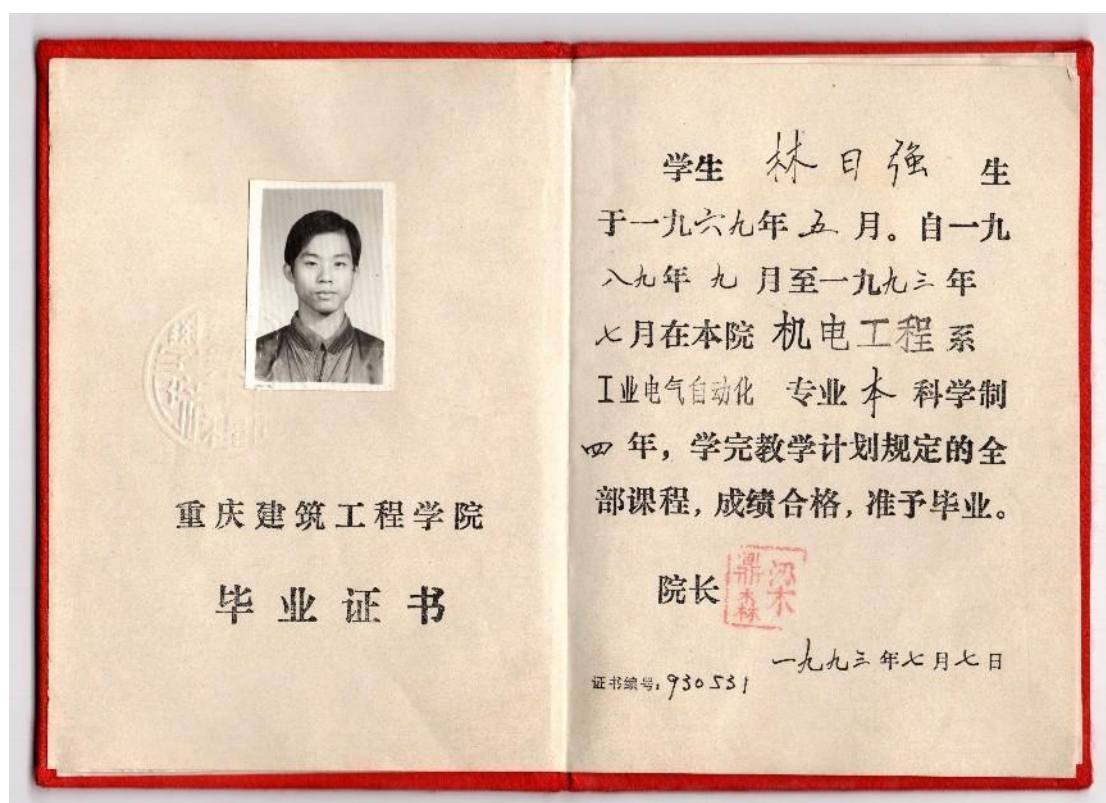 重庆建筑工程学院
毕业证书
学生 林日强 生
于一九六九年五月。自一九
八九年九月至一九九三年
七月在本院 机电工程系
工业电气自动化 专业本科学制
四年，学完教学计划规定的全
部课程，成绩合格，准予毕业。
院长 梁鼎森
一九九三年七月七日
证书编号：930531